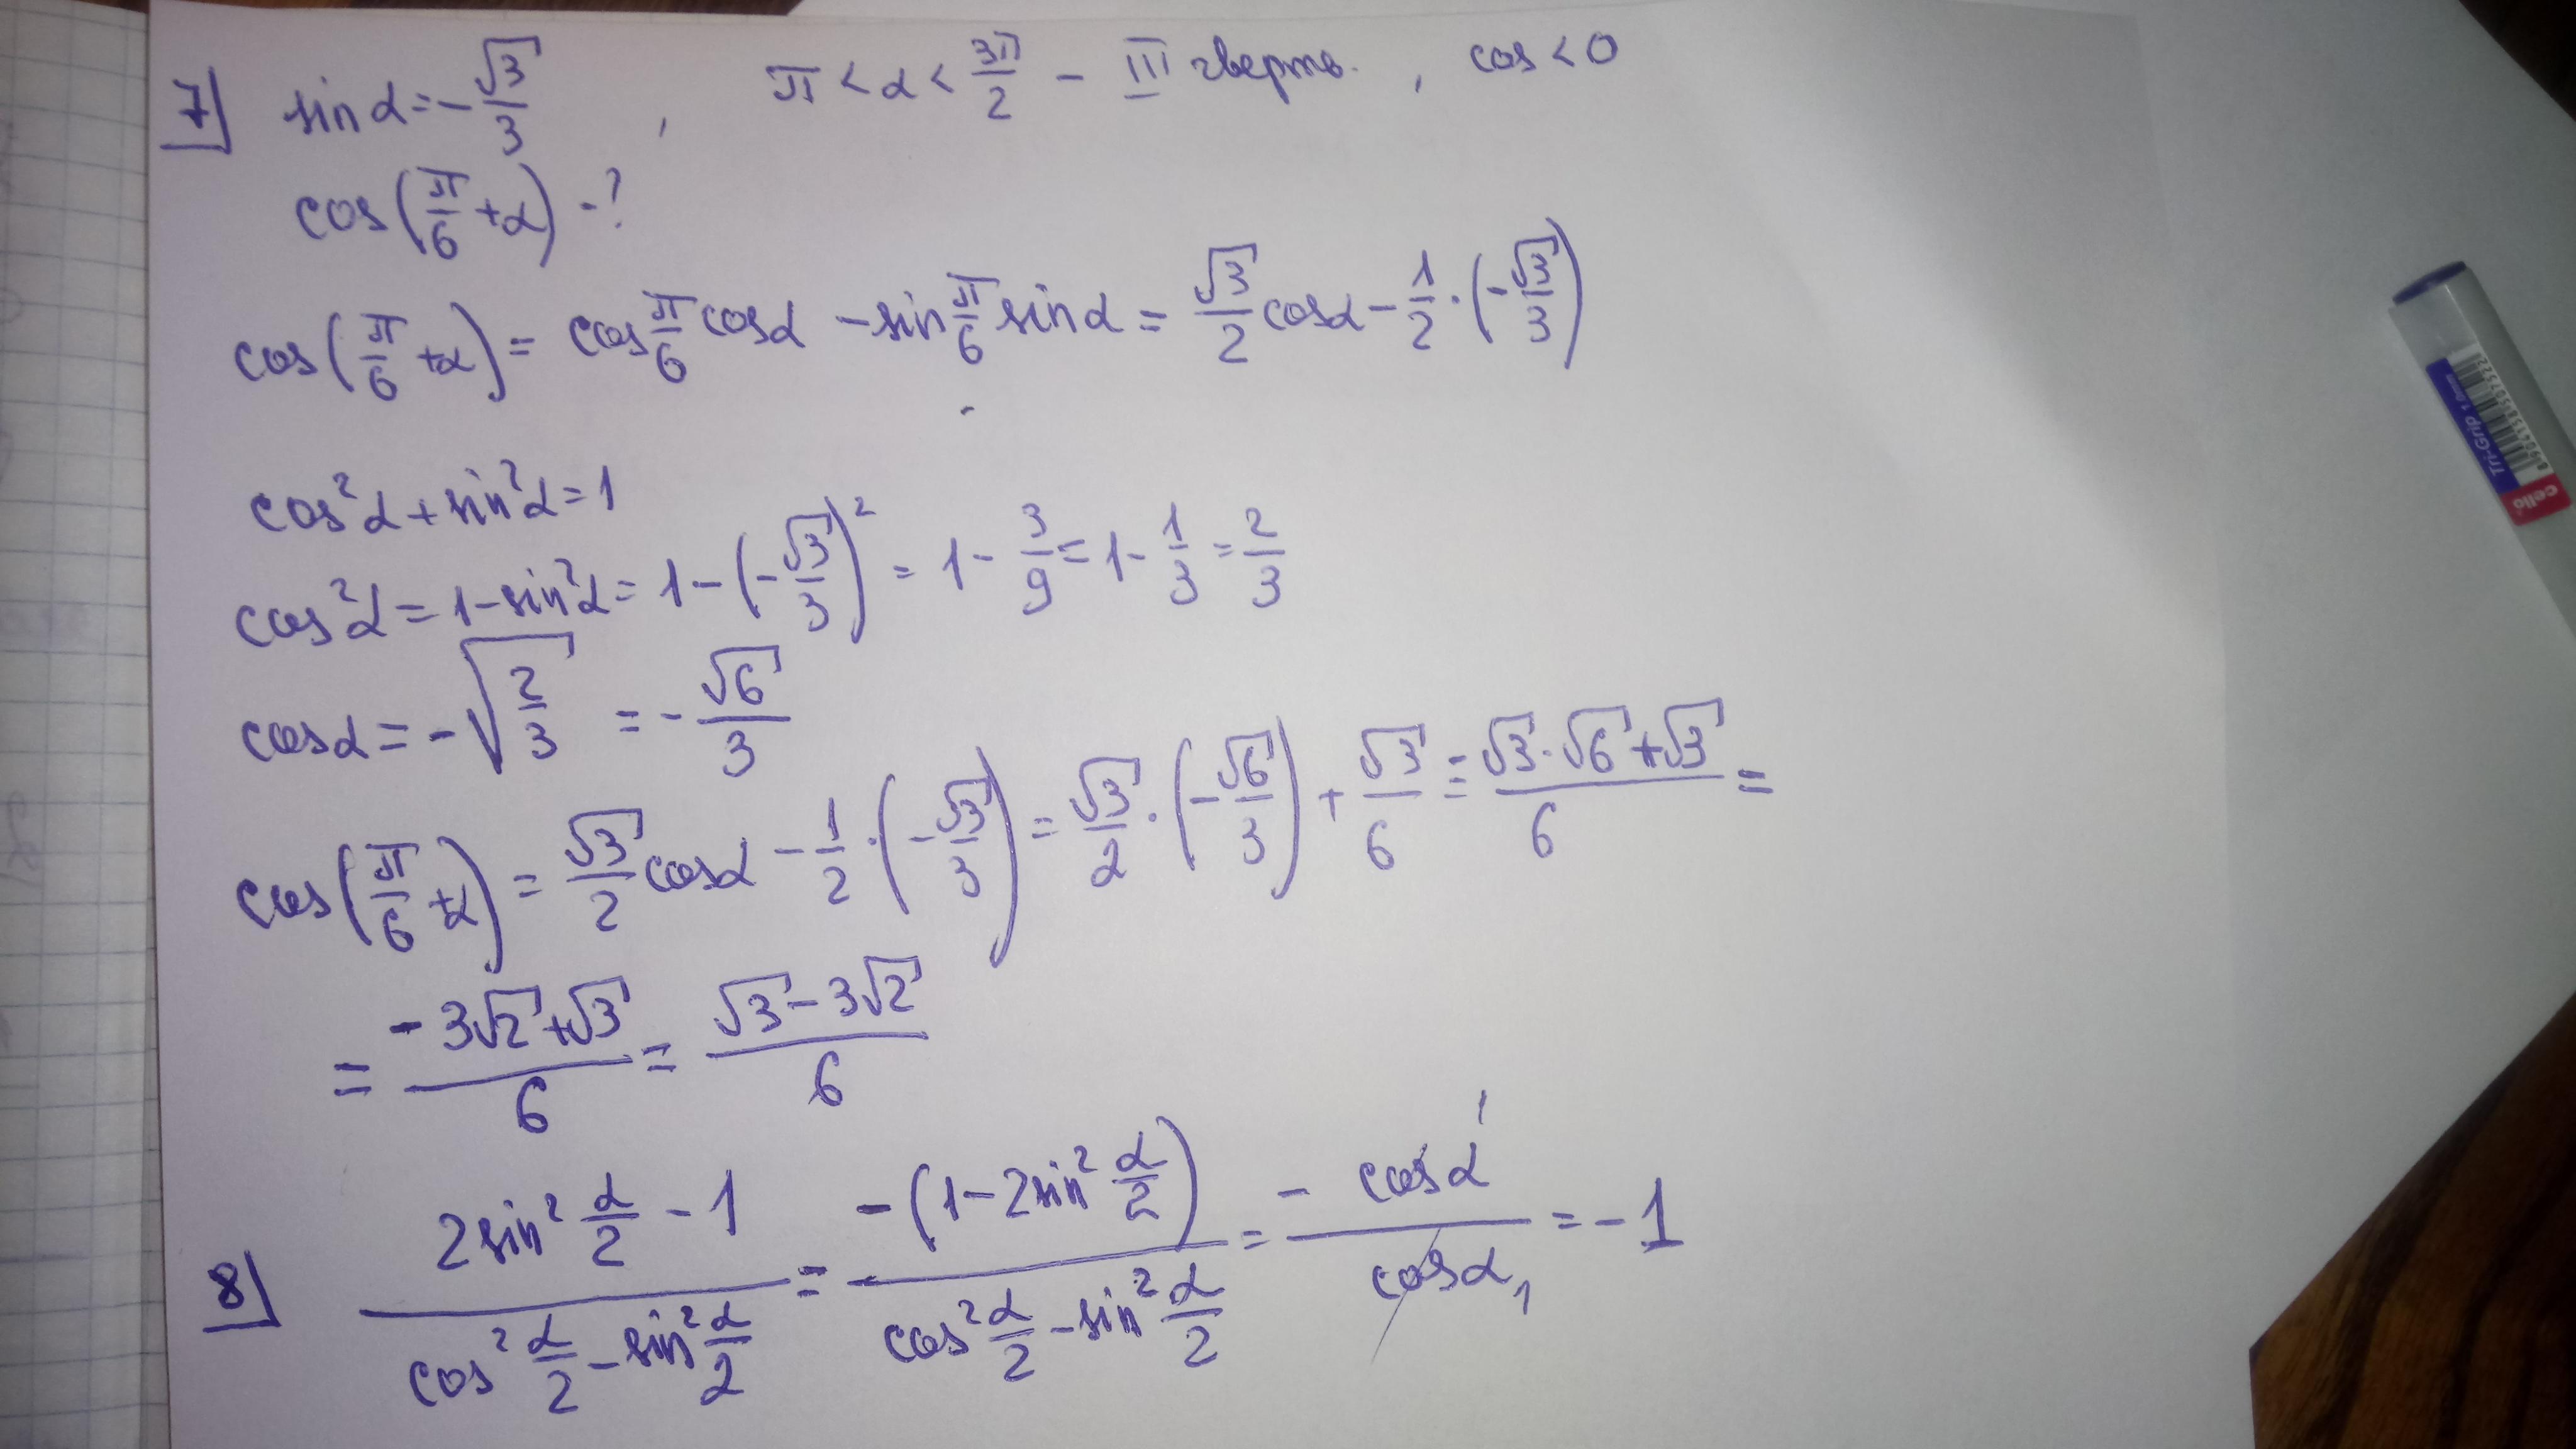 7] sinα = -√3/3 , π < α < 3π/2 - III чверть. , cos < 0
cos(π/6 + α) - ?
cos(π/6 + α) = cos π/6 cosα - sin π/6 sinα = √3/2 cosα - 1/2 · (-√3/3)
cos²α + sin²α = 1
cos²α = 1 - sin²α = 1 - (-√3/3)² = 1 - 3/9 = 1 - 1/3 = 2/3
cosα = -√(2/3) = -√6/3
cos(π/6 + α) = √3/2 cosα - 1/2 · (-√3/3) = √3/2 · (-√6/3) + √3/6 = (√3 · √6 + √3)/6 =
= (-3√2 + √3)/6 = (√3 - 3√2)/6
8] (2sin² α/2 - 1)/(cos² α/2 - sin² α/2) = -(1 - 2sin² α/2)/(cos² α/2 - sin² α/2) = - cosα 1/cosα 1 = -1
Tri-Grip 1.0mm
cello